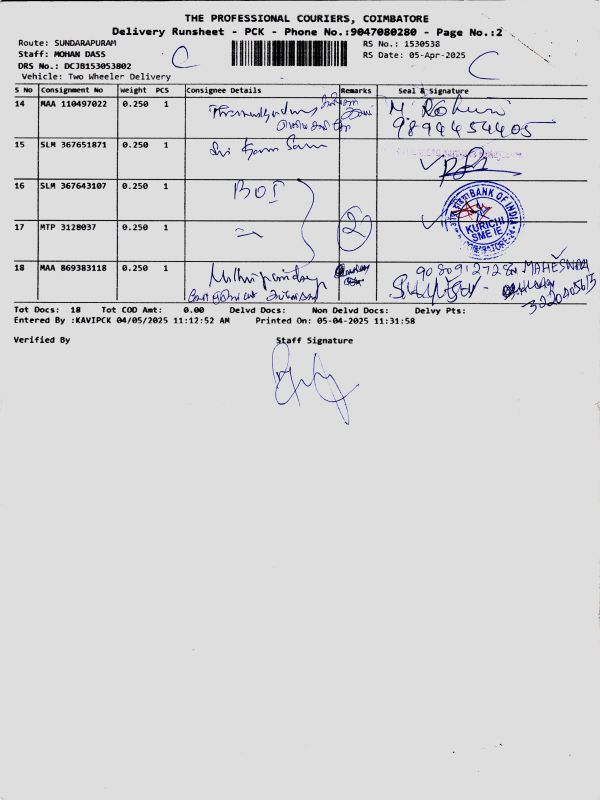 THE PROFESSIONAL COURIERS, COIMBATORE
Delivery Runsheet - PCK - Phone No.:9047080280 - Page No.:2
Route: SUNDARAPURAM
RS No.: 1530538
Staff: MOHAN DASS
RS Date: 05-Apr-2025
DRS No.: DCJB153053802
Vehicle: Two Wheeler Delivery
C
C
S No Consignment No Weight PCS Consignee Details Remarks Seal & Signature
14 MAA 110497022 0.250 1 M
9894454405
15 SLM 367651871 0.250 1 Sri Ram
16 SLM 367643107 0.250 1 BOI
BANK OF INDIA
KURICHI
SME IE
17 MTP 3128037 0.250 1 2
18 MAA 869383118 0.250 1 MAHESWARI
Tot Docs: 18 Tot COD Amt: 0.00 Delvd Docs: Non Delvd Docs: Delvy Pts:
Entered By :KAVIPCK 04/05/2025 11:12:52 AM Printed On: 05-04-2025 11:31:58
Verified By Staff Signature